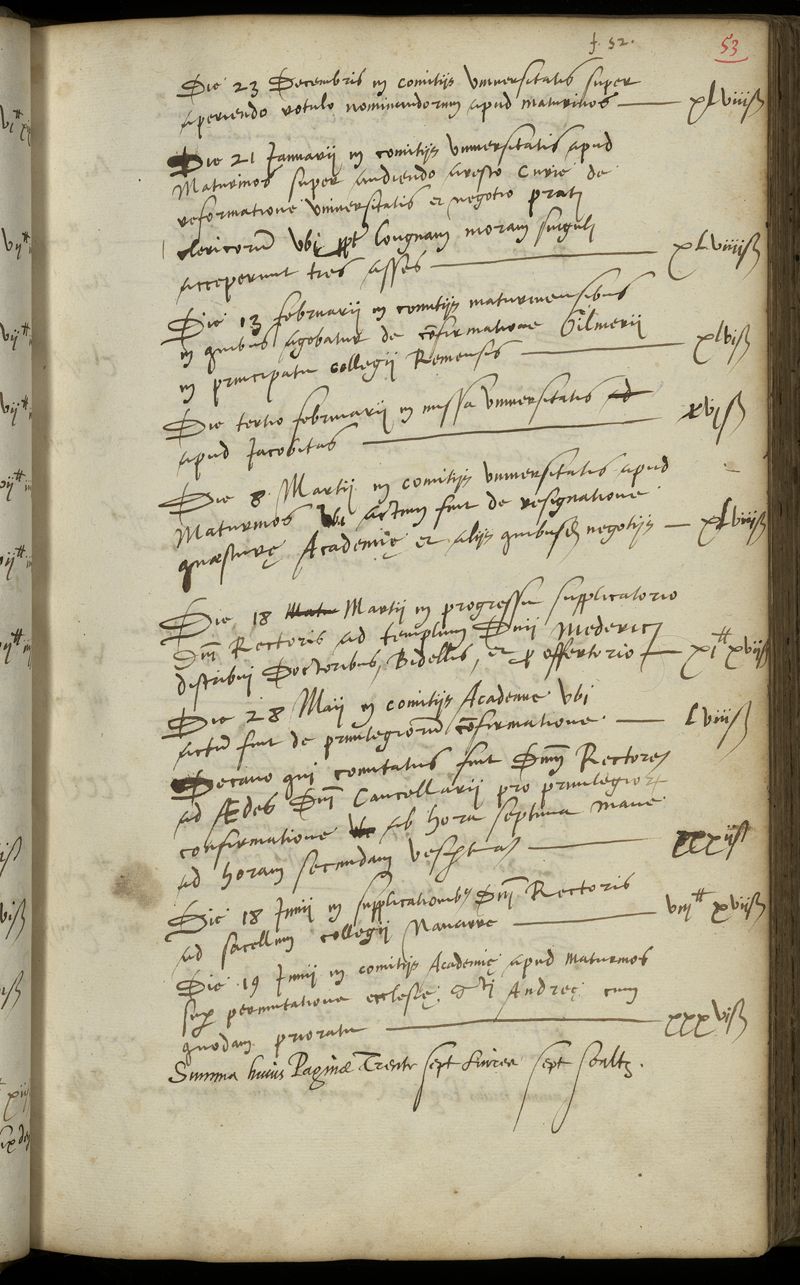 f. 52.
53
Die 23 Decembris in comitijs universitatis super
aperiendo rotulo nominandorum apud maturinos — xlviiiß
Die 21 Januarij in comitijs universitatis apud
Maturinos super audiendo aresto Curie de
reformatione universitatis et negotio prati
clericorū ubi ppt longuam moram singuli
acceperunt tres asses — xlviiiß
Die 13 februarij in comitijs maturinensibus
in quibus agebatur de cōfirmatione Gilmerij
in principatu collegij Remensis — xlviß
Die tertio februarij in missa universitatis ad
apud Jacobitas — xviß
Die 8 Martij in comitijs universitatis apud
Maturinos ubi actum fuit de resignatione
quæsturę Academię et alijs quibusd negotijs — xlviiiß
Die 18 Matu Martij in progressu supplicatorio
Dnī Rectoris ad templum Diui Mederici
distribui Doctoribus, Bidellis, et p offertorio — xi₶ xviiß
Die 28 Maij in comitijs Academie ubi
actū fuit de privilegiorū cōfirmatione — lviiiß
Decano qui comitatus fuit Dnum Rectorem
ad Ædes Dnī Cancellarij pro privilegiorꝝ
confirmatione ab hora septima mane
ad horam secundam vesptinā — xxxijß
Die 18 Junij in supplicationibꝰ Dnī Rectoris
ad sacellum collegij Navarre — viij₶ xviiß
Die 19 Junij in comitijs Academię apud maturinos
sup permutatione ecclesię Sti Andreę cum
quodam prioratu — xxxviß
Summa huius Paginæ Trente sept livres sept soultz.